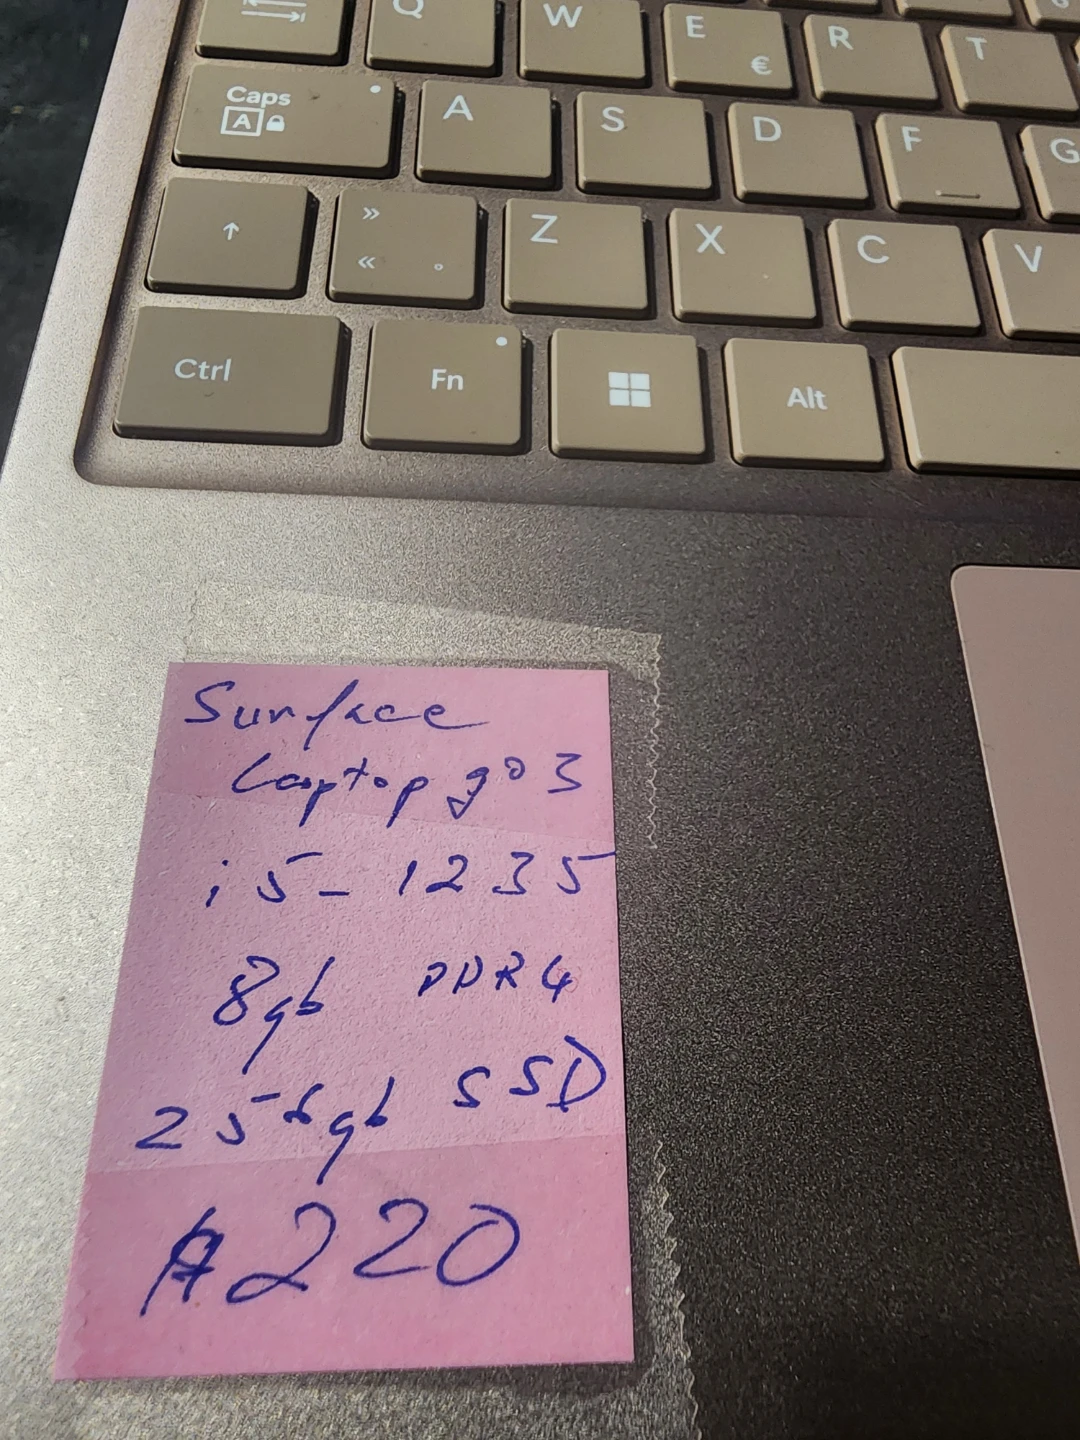 Q W E € R T
Caps A A S D F G
↑ » « ° Z X C V
Ctrl Fn Alt
Surface
Laptop go 3
i5- 1235
8gb DDR4
256gb SSD
220